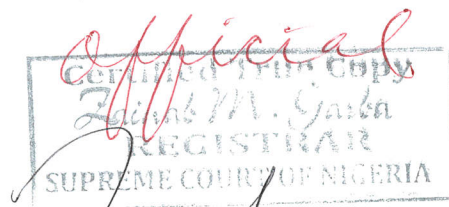 Official
Certified True Copy
Zainab M. Garba
REGISTRAR
SUPREME COURT OF NIGERIA